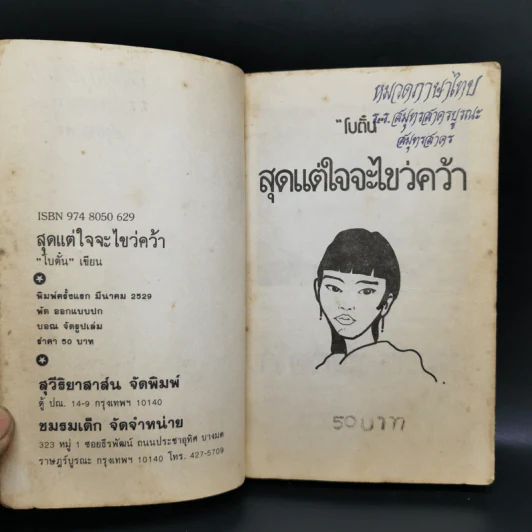 ISBN 974 8050 629
สุดแต่ใจจะไขว่คว้า
"โบตั๋น" เขียน
พิมพ์ครั้งแรก มีนาคม 2529
พัด ออกแบบปก
บอณ จัดรูปเล่ม
ราคา 50 บาท
สุวีริยาสาส์น จัดพิมพ์
ตู้ ปณ. 14-9 กรุงเทพฯ 10140
ชมรมเด็ก จัดจำหน่าย
323 หมู่ 1 ซอยธีรพัฒน์ ถนนประชาอุทิศ บางมด
ราษฎร์บูรณะ กรุงเทพฯ 10140 โทร. 427-5709
หมวดภาษาไทย
ร.ร. สมุทรสาครบูรณะ
สมุทรสาคร
"โบตั๋น"
สุดแต่ใจจะไขว่คว้า
50 บาท